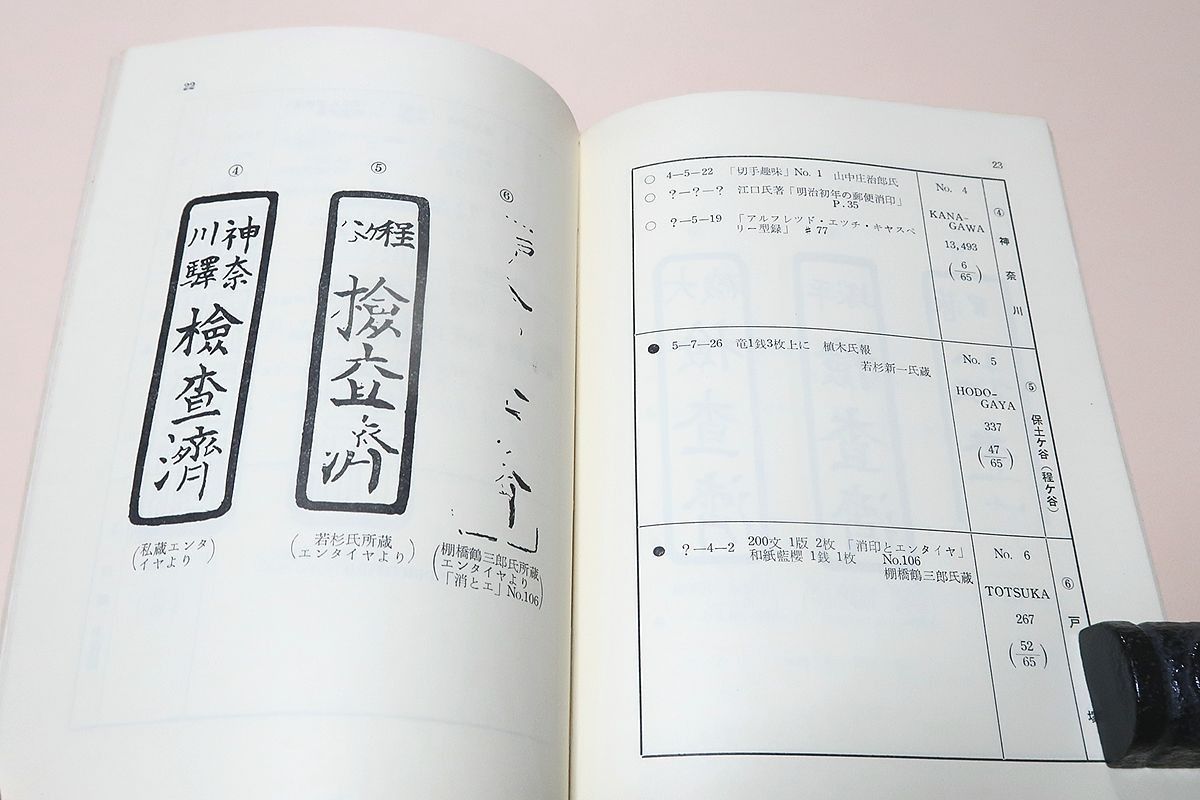 22
④
神奈
川驛
檢查濟
(私蔵エンタ
イヤより)
⑤
程
檢查濟
(若杉氏所蔵
エンタイヤより)
⑥
(棚橋鶴三郎氏所蔵
エンタイヤより
「消とエ」No.106)
23
④神奈川
No. 4
KANA-
GAWA
13,493
(6/65)
○ 4―5―22 「切手趣味」No. 1 山中庄治郎氏
○ ?―?―? 江口氏著「明治初年の郵便消印」
P.35
○ ?―5―19 「アルフレツド・エツチ・キヤスペ
リー型録」 #77
⑤保土ケ谷(程ケ谷)
No. 5
HODO-
GAYA
337
(47/65)
● 5―7―26 竜1銭3枚上に 植木氏報
若杉新一氏蔵
⑥戸
No. 6
TOTSUKA
267
(52/65)
● ?―4―2 200文 1版 2枚 「消印とエンタイヤ」
和紙藍櫻 1銭 1枚 No.106
棚橋鶴三郎氏蔵